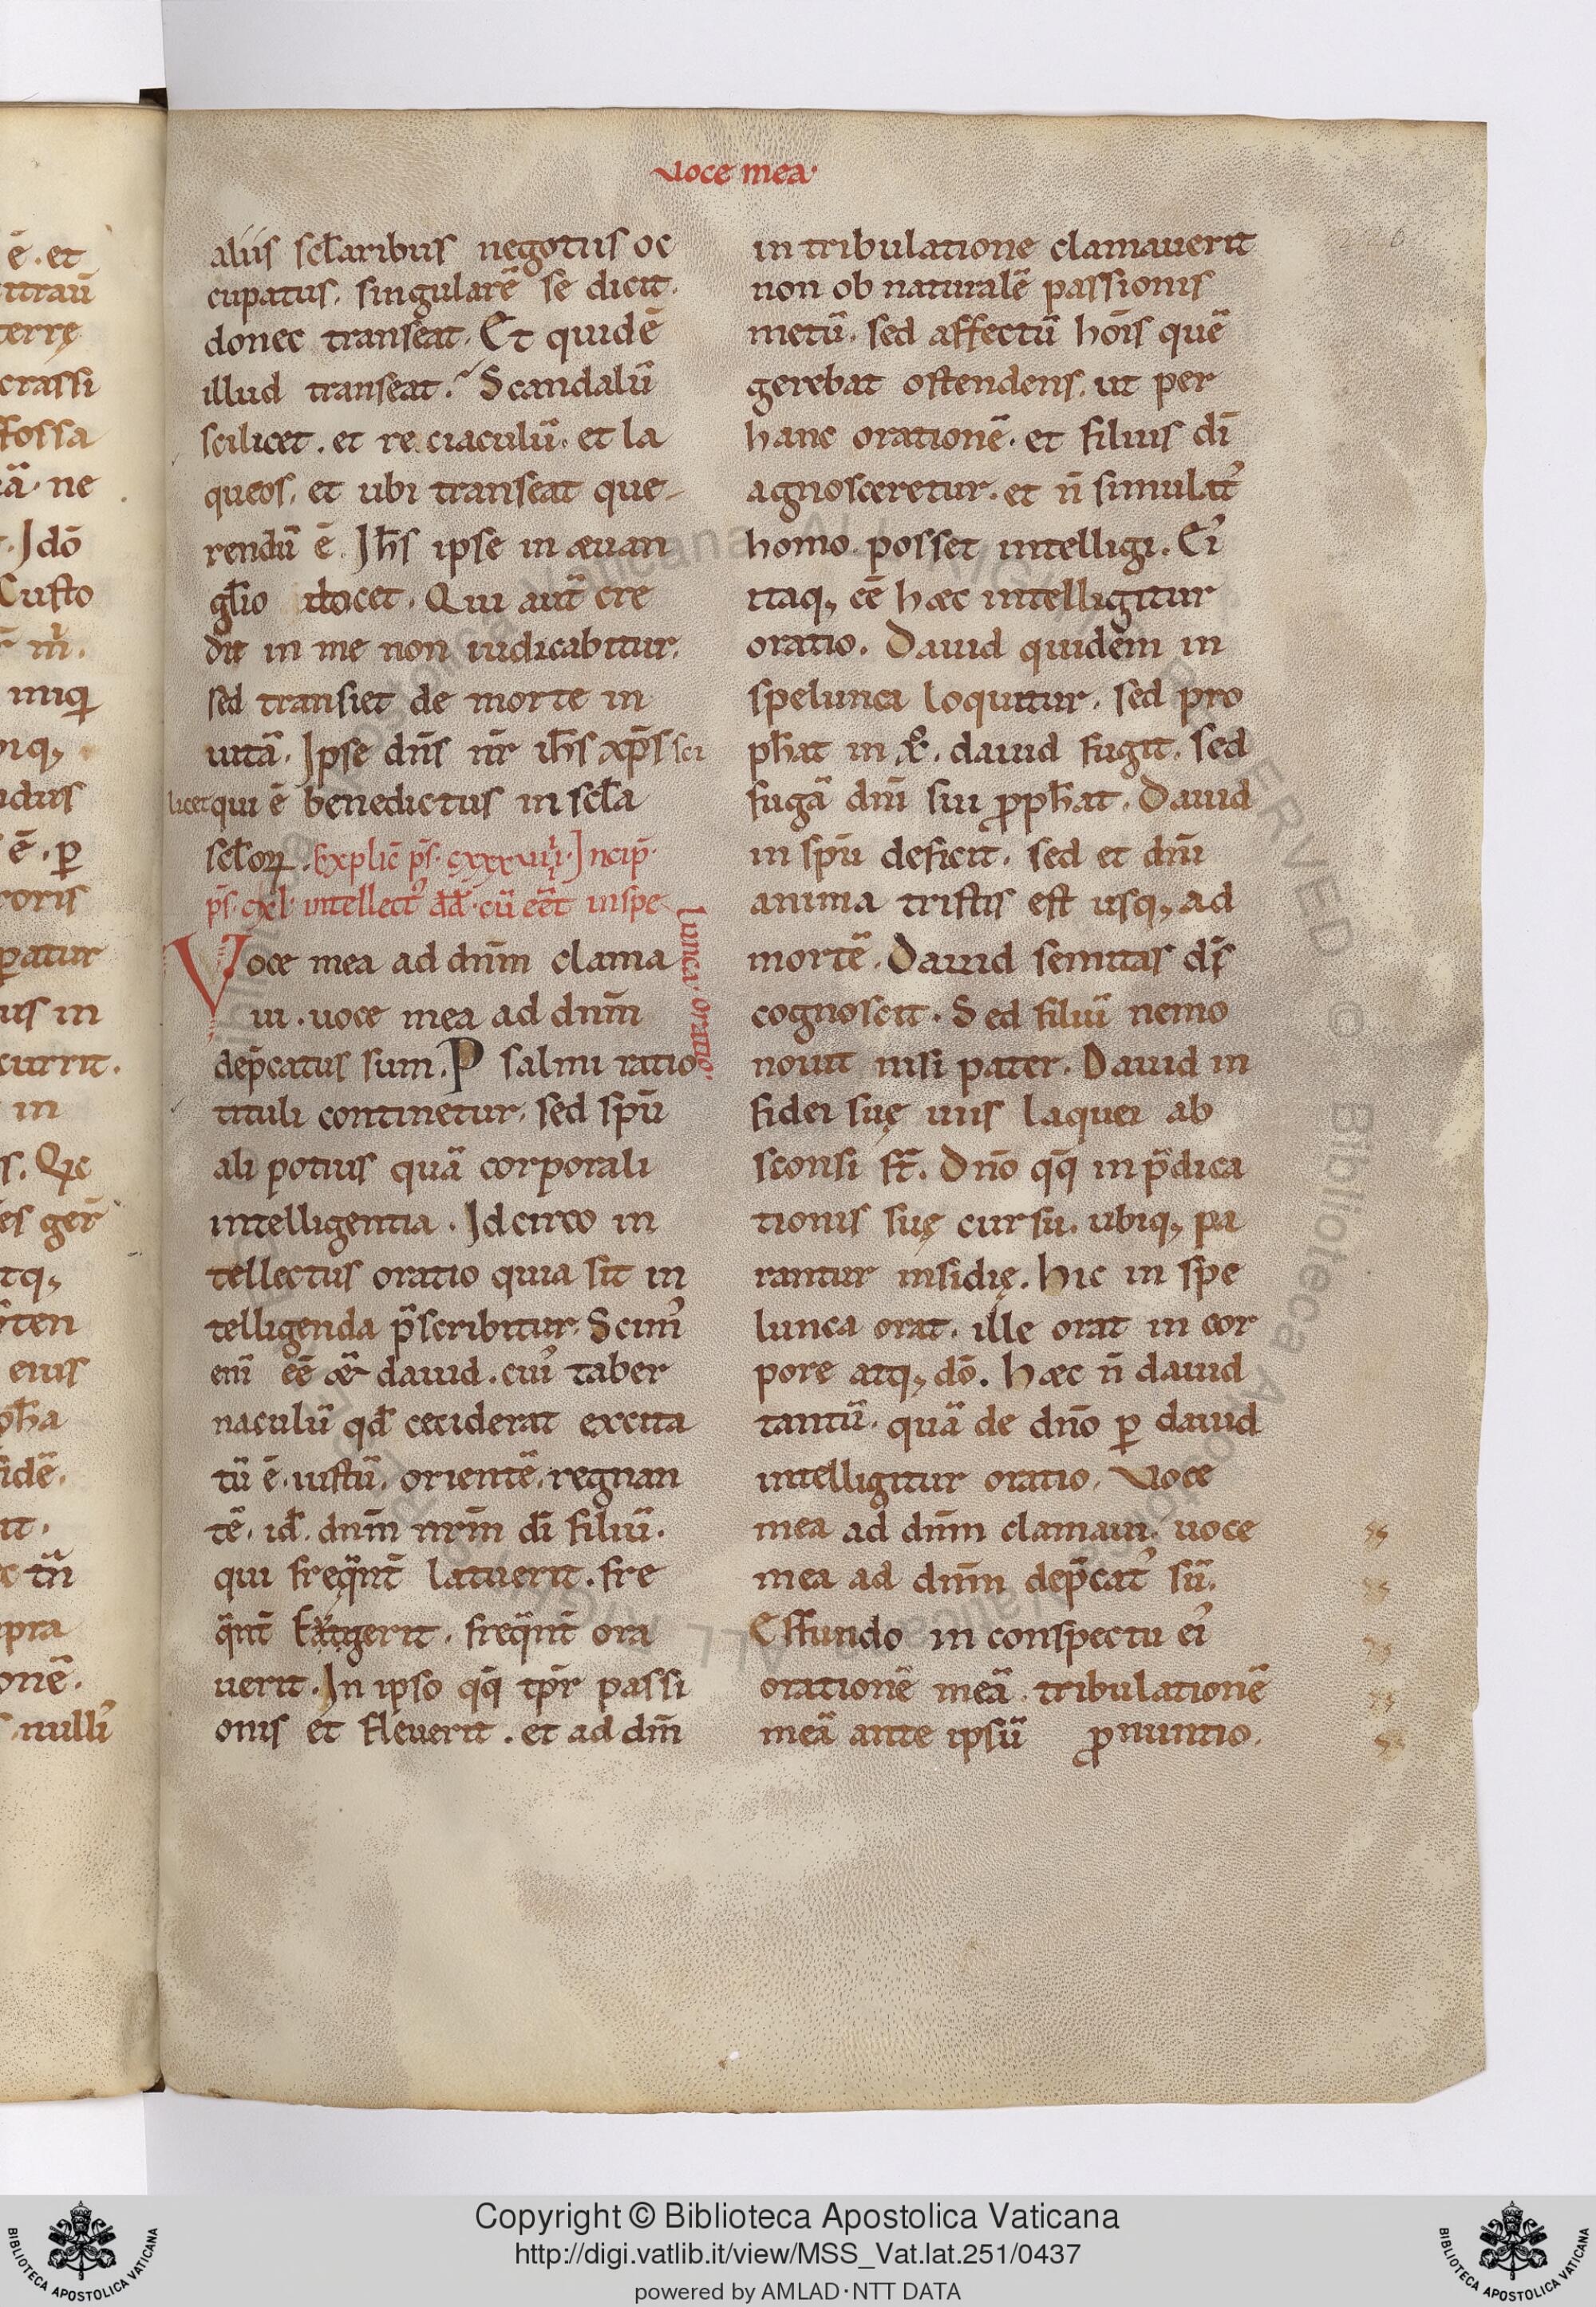 ē · et
itraū
terrę
crassi
fossa
ā · ne
· Idō
Custo
m̄.
iniq
biq;
idus
ē · ꝑ
roris
ꝑatur
us in
currit.
in
s. Qic
ēs ger̄
tq;
ten
eius
oph̄a
fidē.
it.
c tn̄
pra
onē.
· nulli᾽
voce mea·
aliis scl̄aribus negotiis oc
cupatus. singularē se dicit.
donec transeat. Et quidē
illud transeat.᾽ Scandalū
scilicet . et re ciaculū. et la
queos. et ubi transeat que-
rendū ē. Ih̄s ipse in æuan
gl̄io docet. Qui aūt cre
dit in me non iudicabitur.
sed transiet de morte in
uitā. Ipse dn̄s nr̄ ih̄s xp̄s sci
licet qui ē benedictus in scl̄a
scl̄oꝝ. Explic̄ ps̄. cxxxviiii. Incip̄.
ps̄. cxl. intellect᾽ dd̄. cū eēt in spe
lunca· oratio·
Voce mea ad dn̄m clama
ui . uoce mea ad dn̄m
dep̄catus sum. Psalmi ratio
tituli continetur. sed spū
ali potius quā corporali
intelligentia . Idcirco in
tellectus oratio quia sit in
telligenda p̄scribitur. Scim᾽
eni ēē dauid . cui᾽ taber
naculū qd̄ ceciderat excita
tū ē. iustū. orientē. regnan
tē. id̄. dn̄m nr̄m dī filiū.
qui freqn̄t latuerit. fre
qn̄t fugerit. freqn̄t ora
uerit. In ipso qq̄ tp̄r passi
onis et fleuerit . et ad dm̄
in tribulatione clamauerit
non ob naturalē passionis
metū. sed affectū hōis quē
gerebat ostendens. ut per
hanc orationē. et filius dī
agnosceretur. et n̄ simulat᾽
homo posset intelligi. Ei᾽
itaq; cē hæc intelligitur
oratio. Dauid quidem in
spelunca loquitur. sed pro
ph̄at in xº. dauid fugit. sed
fugā dn̄i sui ꝓph̄at. Dauid
in spū deficit. sed et dn̄i
anima tristis est usq; ad
mortē. Dauid semitas ds̄
cognoscit. Sed filiū nemo
nouit nisi pater. Dauid in
fidei suę uiis laquei ab
sconsi st̄. Dn̄o qq̄ in p̄dica
tionis suę cursu. ubiq; pa
rantur insidię. hic in spe
lunca orat. ille orat in cor
pore atq; dō. hæc n̄ dauid
tantū. quā de dn̄o ꝑ dauid
intelligitur oratio. Voce
mea ad dn̄m clamaui. uoce
mea ad dn̄m dep̄cat᾽ sū.
Effundo in conspectu ei᾽
orationē meā . tribulationē
meā ante ipsū ꝓnuntio.
Copyright © Biblioteca Apostolica Vaticana
http://digi.vatlib.it/view/MSS_Vat.lat.251/0437
powered by AMLAD·NTT DATA
BIBLIOTECA APOSTOLICA VATICANA
BIBLIOTECA APOSTOLICA VATICANA